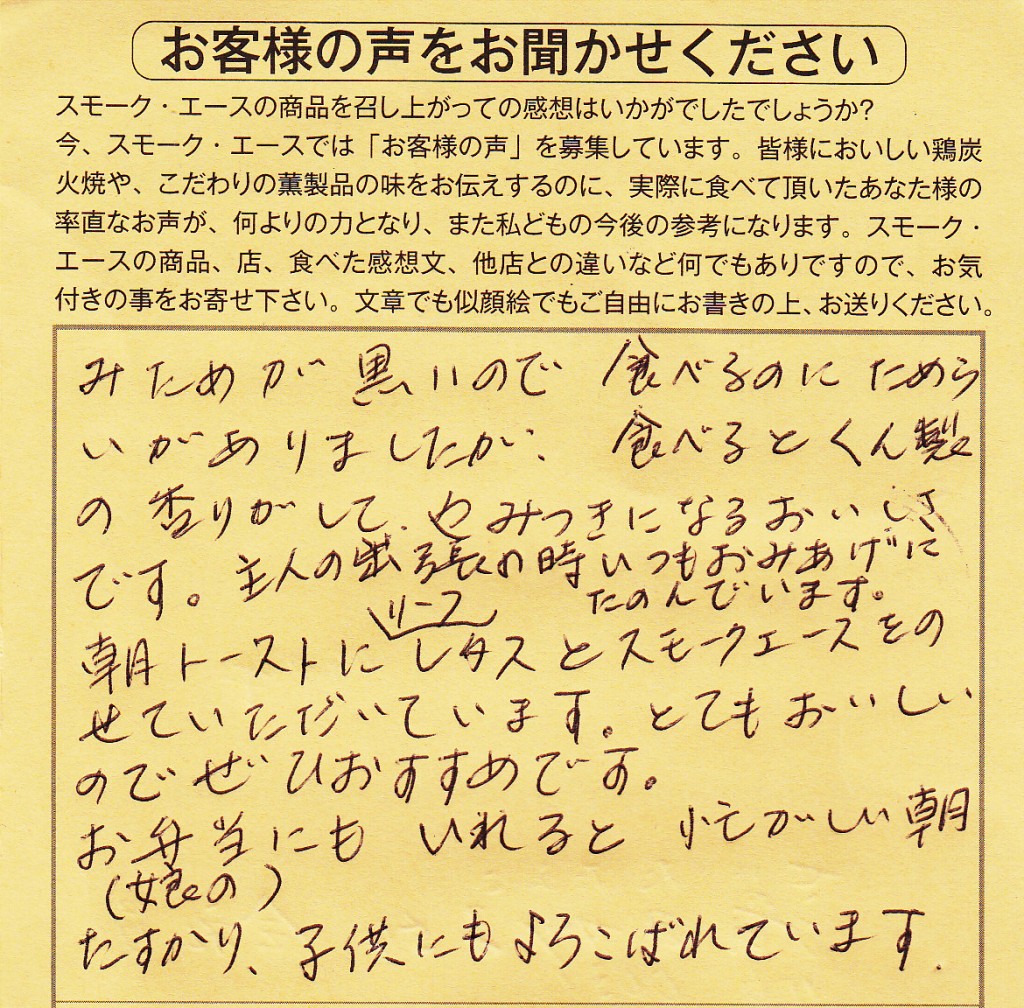 お客様の声をお聞かせください
スモーク・エースの商品を召し上がっての感想はいかがでしたでしょうか?
今、スモーク・エースでは「お客様の声」を募集しています。皆様においしい鶏炭
火焼や、こだわりの薫製品の味をお伝えするのに、実際に食べて頂いたあなた様の
率直なお声が、何よりの力となり、また私どもの今後の参考になります。スモーク・
エースの商品、店、食べた感想文、他店との違いなど何でもありですので、お気
付きの事をお寄せ下さい。文章でも似顔絵でもご自由にお書きの上、お送りください。
みためが黒いので 食べるのにためら
いがありましたが、食べるとくん製
の香りがして、やみつきになるおいしさ
です。主人の出張の時いつもおみあげに
たのんでいます。
リーフ
朝トーストにレタスとスモークエースをの
せていただいています。とてもおいしい
のでぜひおすすめです。
お弁当にも いれると 忙がしい朝
(娘の)
たすかり、子供にもよろこばれています.